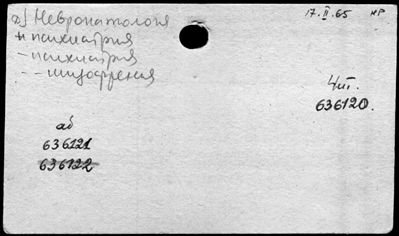 а) Невропатология
и психиатрия
– психиатрия
– – шизофрения
17.II.65 нр
Чит.
636120.
аб
636121
636122